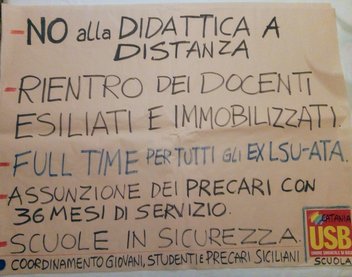 - NO alla DIDATTICA A
DISTANZA
- RIENTRO DEI DOCENTI
ESILIATI E IMMOBILIZZATI.
- FULL TIME PER TUTTI gli EX LSU-ATA.
- ASSUNZIONE DEI PRECARI CON
36 MESI DI SERVIZIO.
- SCUOLE IN SICUREZZA.
COORDINAMENTO GIOVANI, STUDENTI E PRECARI SICILIANI
CATANIA
USB
SCUOLA